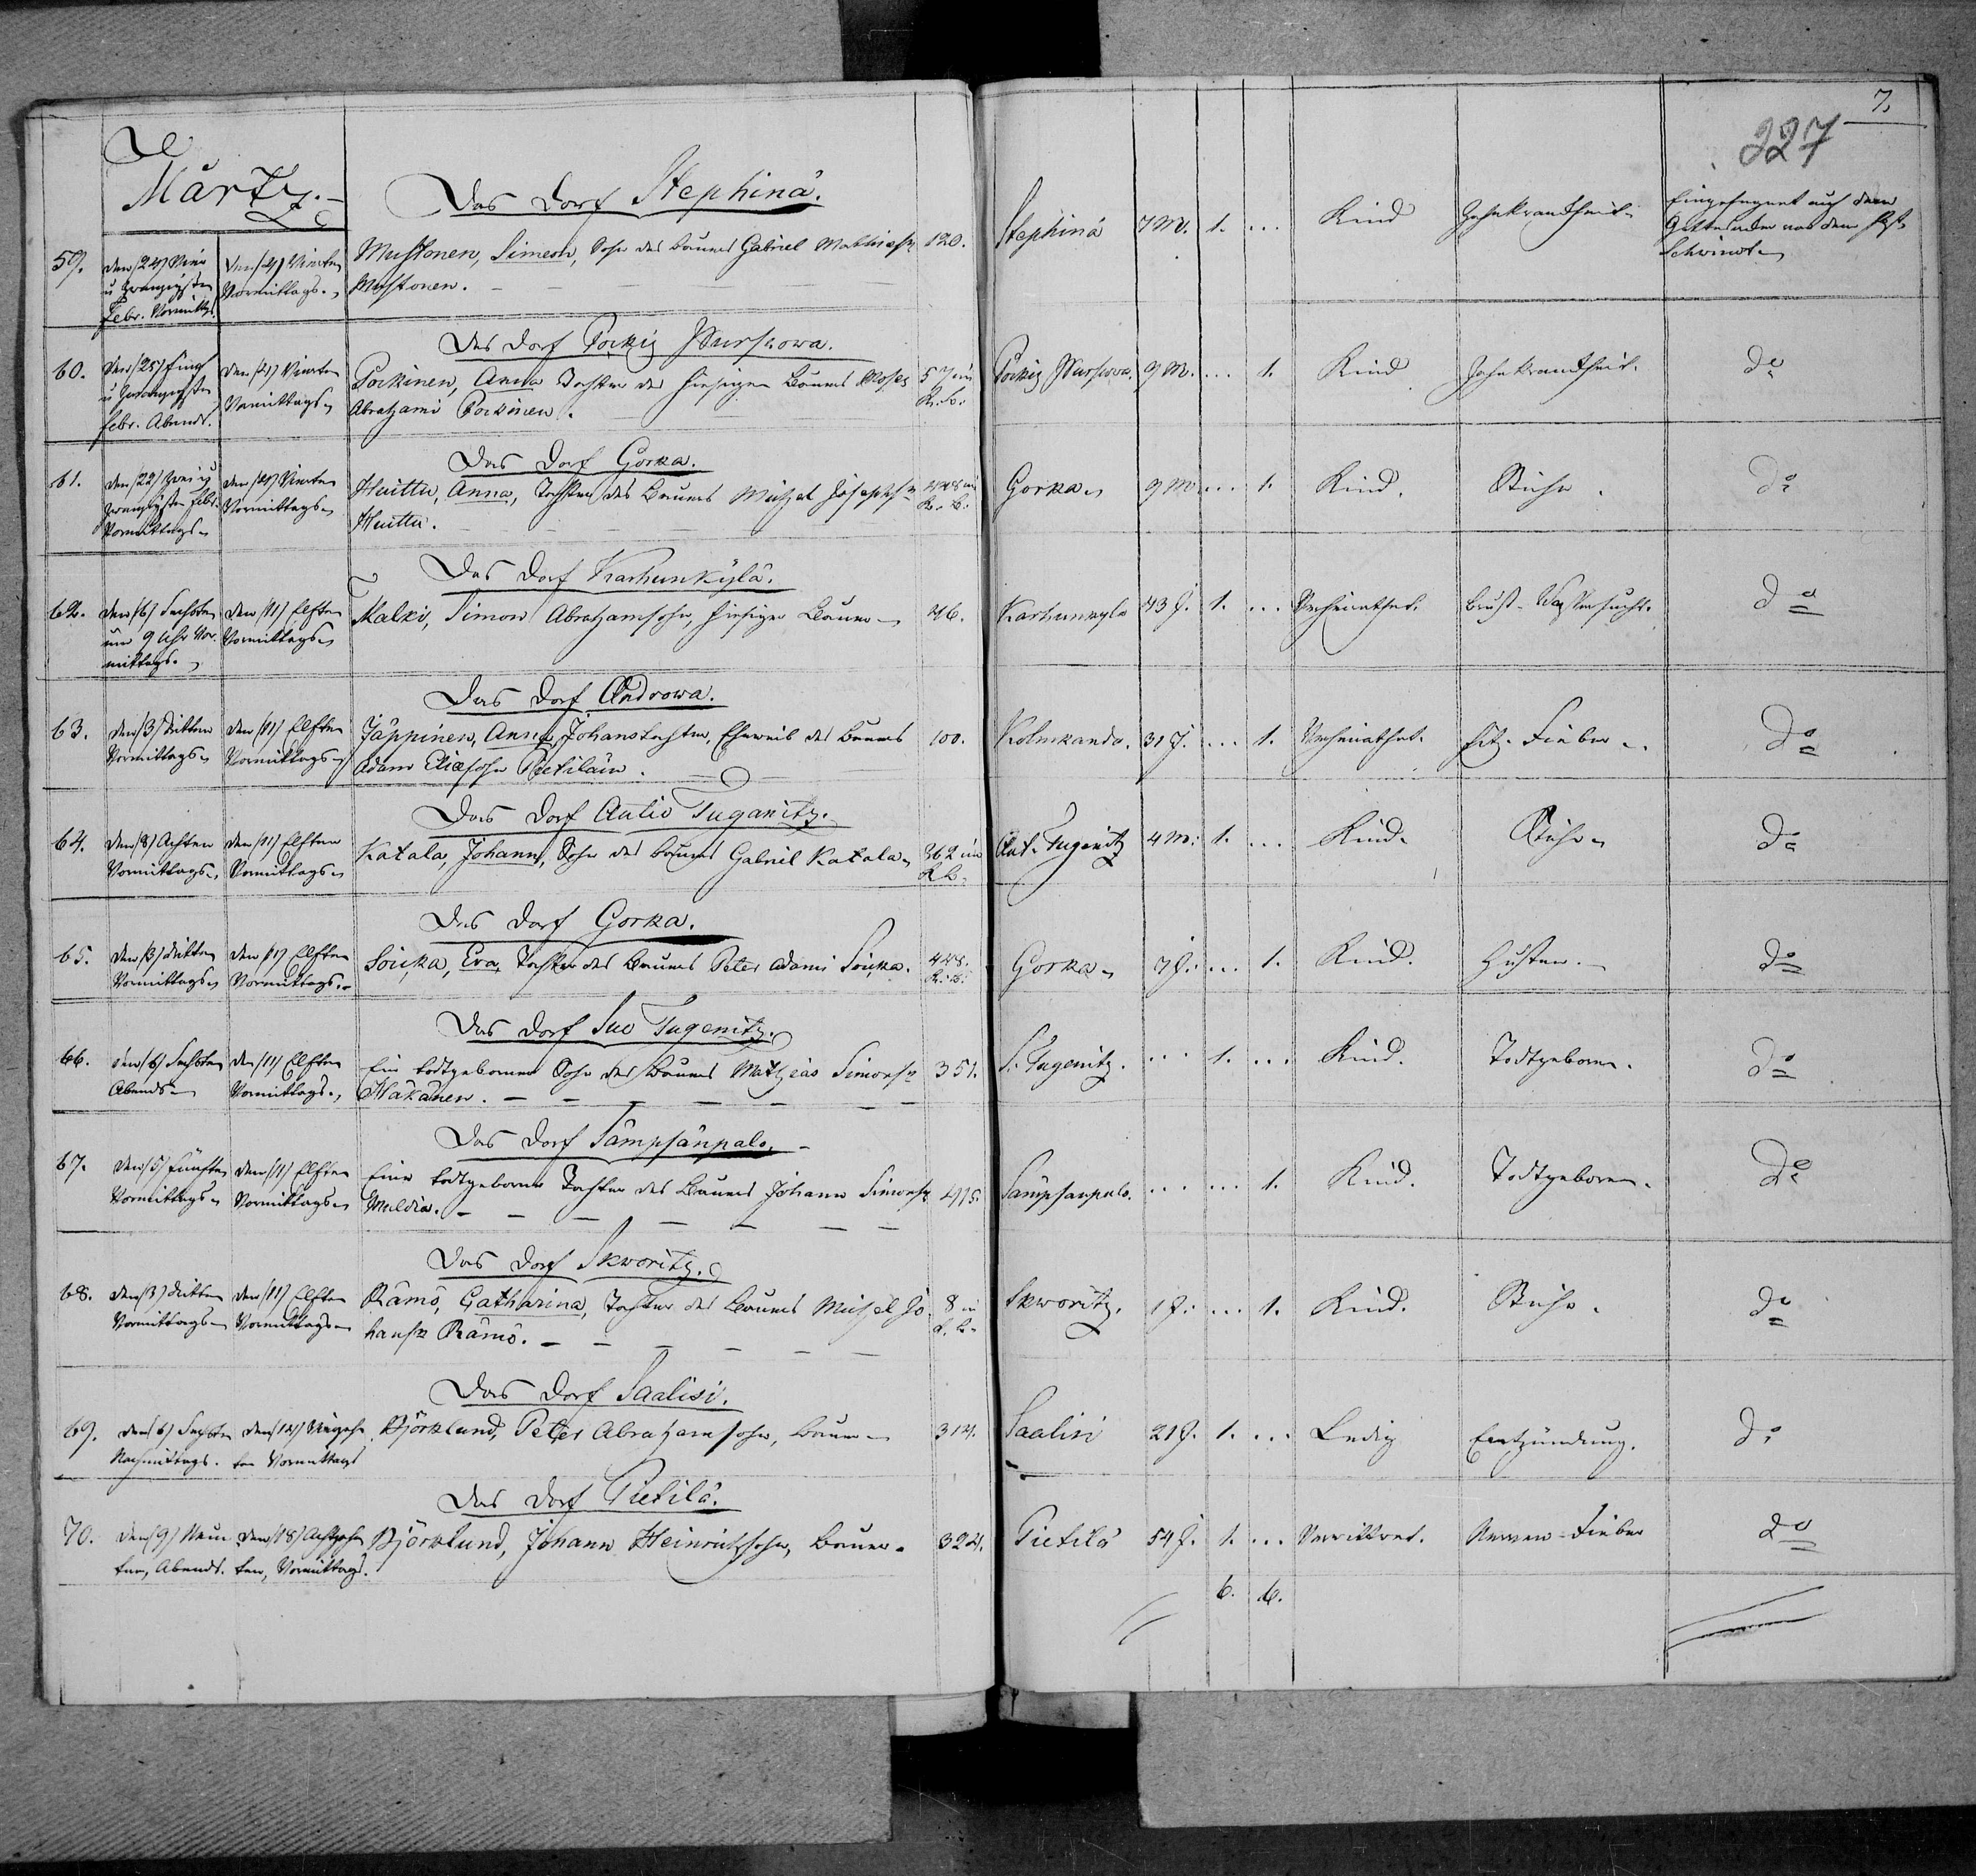 7.
227
Märtz.
Das Dorf Stephinä.
59. den /24/ Vier u zwanzigsten Febr. Vormittgs. den /4/ Vierten Vormittags. Mustonen, Simeon, Sohn des Bauers Gabriel Mathiassn 120. Stephinä 7 M. 1. ... Kind Zahnkrankheit. Eingesegnet auf dem Gottesacker von dem Past.
Mustonen. Schwindt
Das Dorf Pöckiz Wurskowa.
60. den /25/ Fünf u zwanzigsten Febr. Abends. den /4/ Vierten Vormittags Pockinen, Anna Tochter des hiesigen Bauers Moses 57 im K. B. Pöckiz Wurskowa. 9 M. ... 1. Kind Zahnkrankheit. do
Abrahami Pockinen.
Das Dorf Gorka.
61. den /22/ zwei u zwanzigsten Febr. Vormittags den /4/ Vierten Vormittags Huittu, Anna, Tochter des Bauers Michel Josephsn 448 im K. B. Gorka 9 M ... 1. Kind. Ruhr. do
Huittu.
Das Dorf Karhunkylä.
62. den /6/ Sechsten um 9 Uhr Vormittags. den /11/ Elften Vormittags Malki, Simon Abrahamsohn, hiesiger Bauer 46. Karhunkylä 43 J. 1. ... Verheirathet. Brust-Wassersucht. do
Das Dorf Androwa.
63. den /3/ Dritten Vormittags den /11/ Elften Vormittags Jäppinen, Anna, Johanstochter, Eheweib des Bauers 100. Kolmkanda. 31 J. ... 1. Verheirathet. Hitz. Fieber do
Adam Eliassohn Pietiläin.
Das Dorf Autio Tuganitz.
64. den /8/ Achten Vormittags den /11/ Elften Vormittags Katala, Johann, Sohn des Bauers Gabriel Katala 362 im K B. Aut. Tugenitz 4 M. 1. ... Kind. Ruhr do
Das Dorf Gorka.
65. den /3/ Dritten Vormittags den /11/ Elften Vormittags. Soucka, Eva, Tochter des Bauers Peter Adami Soucka. 448. K. B. Gorka 7 J. ... 1. Kind. Husten. do
Das Dorf Suo Tugenitz.
66. den /6/ Sechsten Abends den /11/ Elften Vormittags Ein todtgeborner Sohn des Bauers Mathias Simonsn 351. S. Tugenitz. ... 1. ... Kind. Todtgeboren. do
Häkänen.
Das Dorf Sämpsänpalo.
67. den /5/ Fünften Vormittags den /11/ Elften Vormittags Eine todtgeborne Tochter des Bauers Johann Simonsn 415. Sämpsänpalo. ... ... 1. Kind. Todtgeboren. do
Muldia.
Das Dorf Skworitz.
68. den /3/ Dritten Vormittags den /11/ Elften Vormittags Rämö, Catharina, Tochter des Bauers Michel Jo- 8 in K. B. Skworitz. 1 J. ... 1. Kind. Ruhr. do
hansn Rämö.
Das Dorf Saalisi.
69. den /6/ Sechsten Nachmittags. den /14/ Vierzehnten Vormittags Björklund, Peter Abrahamsohn, Bauer 314. Saalisi 21 J. 1. ... Ledig Entzündung. do
Das Dorf Pietilä.
70. den /9/ Neunten, Abends. den /18/ Achtzehnten, Vormittags. Björklund, Johann Heinrichsohn, Bauer. 324. Pietilä 54 J. 1. ... Verwittwet. Nerven-Fieber do
6. 6.